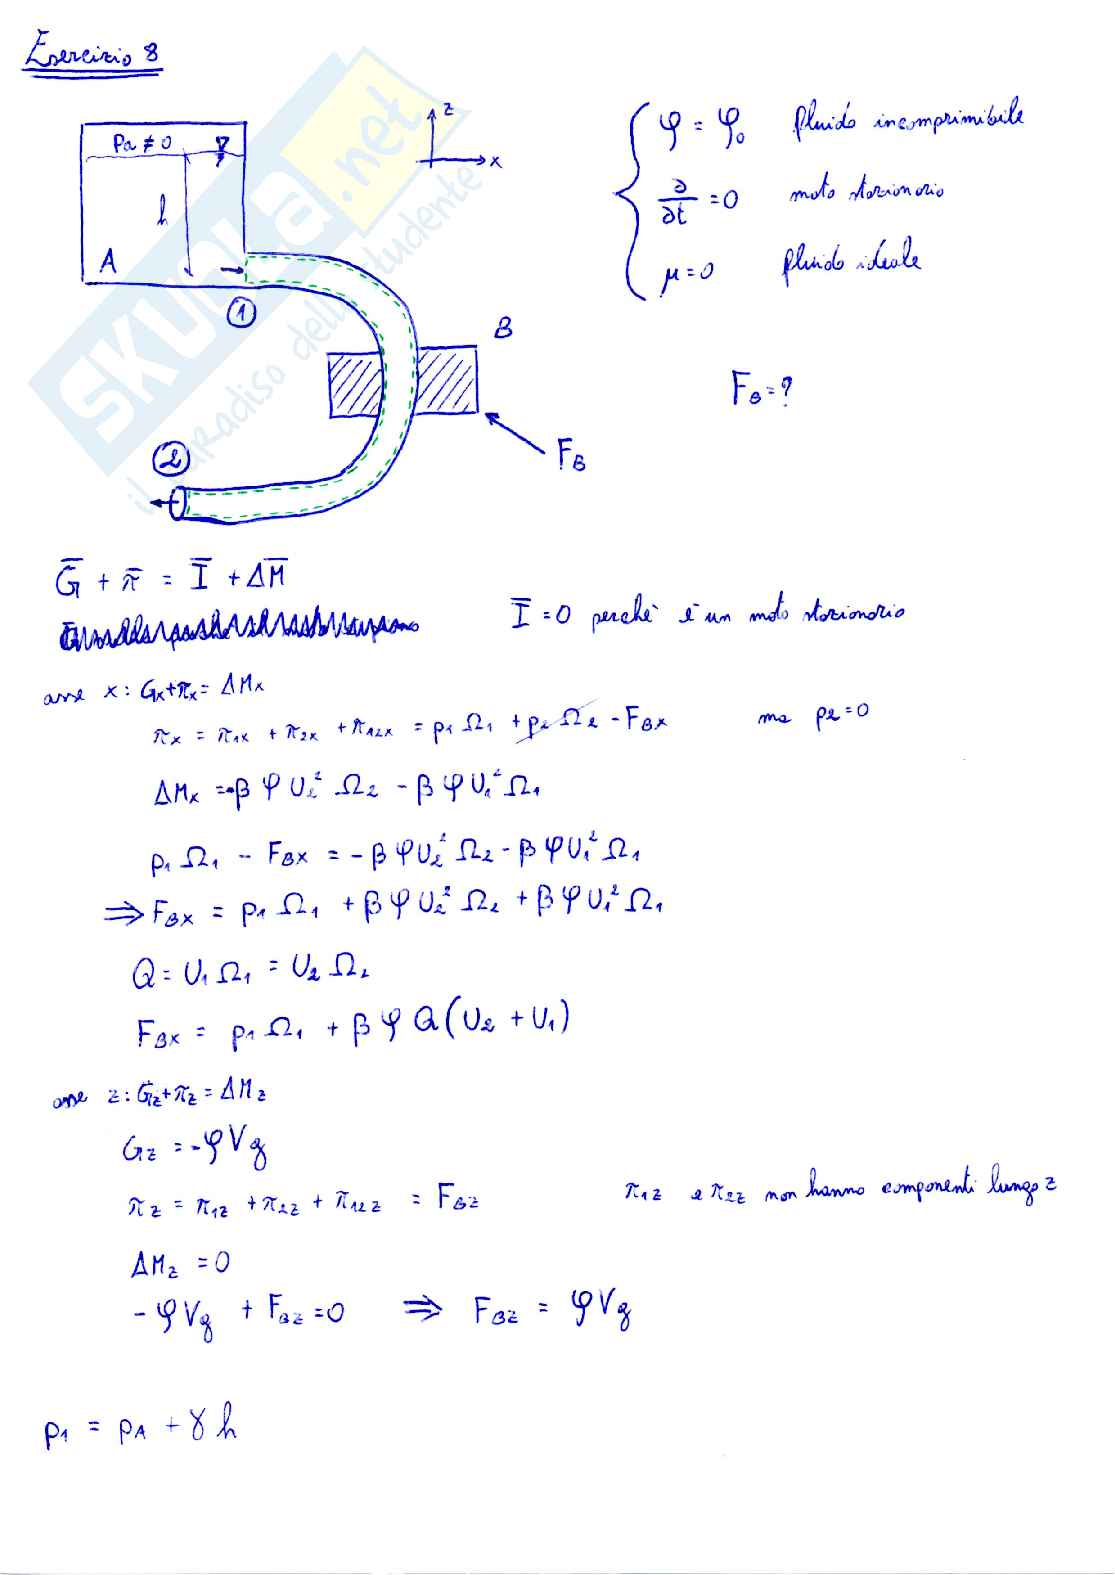 Esercizio 8
z
Pa ≠ 0
x
h
A
1
B
F_B
2
φ = φ₀ fluido incomprimibile
∂/∂t = 0 moto stazionario
μ = 0 fluido ideale
F_B = ?
SKUOLA.net
il paradiso dello studente
G̅ + π̅ = I̅ + ΔM̅
I̅ = 0 perché è un moto stazionario
asse x: Gx + πx = ΔMx
πx = π1x + π2x + π12x = p1 Ω1 + p2 Ω2 - FBx ma p2 = 0
ΔMx = -β φ U2² Ω2 - β φ U1² Ω1
p1 Ω1 - FBx = - β φ U2² Ω2 - β φ U1² Ω1
⇒ FBx = p1 Ω1 + β φ U2² Ω2 + β φ U1² Ω1
Q = U1 Ω1 = U2 Ω2
FBx = p1 Ω1 + β φ Q (U2 + U1)
asse z: Gz + πz = ΔMz
Gz = - φ V g
πz = π1z + π2z + π12z = FBz π1z e π2z non hanno componenti lungo z
ΔMz = 0
- φ V g + FBz = 0 ⇒ FBz = φ V g
p1 = pA + γ h